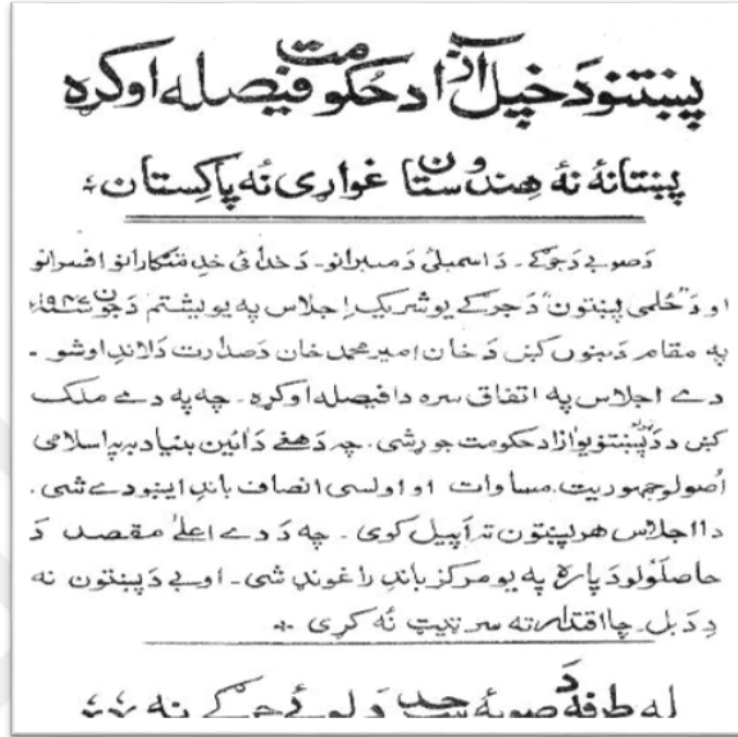 پښتنو دَ خپل آزاد حُکومت فیصله اوکړه
پښتانهٔ نهٔ هِندوستان غواړی نهٔ پاکِستان؛
دَ صوبے دَ جرګے۔ دَ اسمبلئ دَ ممبرانو۔ دَ خدائی خدمتګارانو افسرانو
او دَ "ځلمی پښتون" دَ جرګے یو شریک اِجلاس په یو یشتم دَ جون ۱۹۴۷ء
په مقام دَ بنوں کښ دَ خان امیر محمد خان دَ صدارت دَ لاندِ اوشو۔
دے اجلاس په اتفاق سره دا فیصله اوکړه۔ چه په دے ملک
کښ دِ دَ پښتنو یو آزاد حکومت جوړ شی۔ چه دَ هغے دَ ائین بنیاد به په اسلامی
اُصولو جمہوریت، مساوات او اولسی انصاف باندِ ایښودے شی۔
دا اجلاس هر پښتون ته اَپیل کوی۔ چه دَ دے اعلےٰ مقصد دَ
حاصلَولو دَ پاره په یو مرکز باندِ راغونډ شی۔ او بے دَ پښتون نه
دِ دَ بل چا اقتدار ته سر ټیټ نهٔ کړی
له طرفه دَ صوبهٔ سرحد دَ لوئے جرګے نه